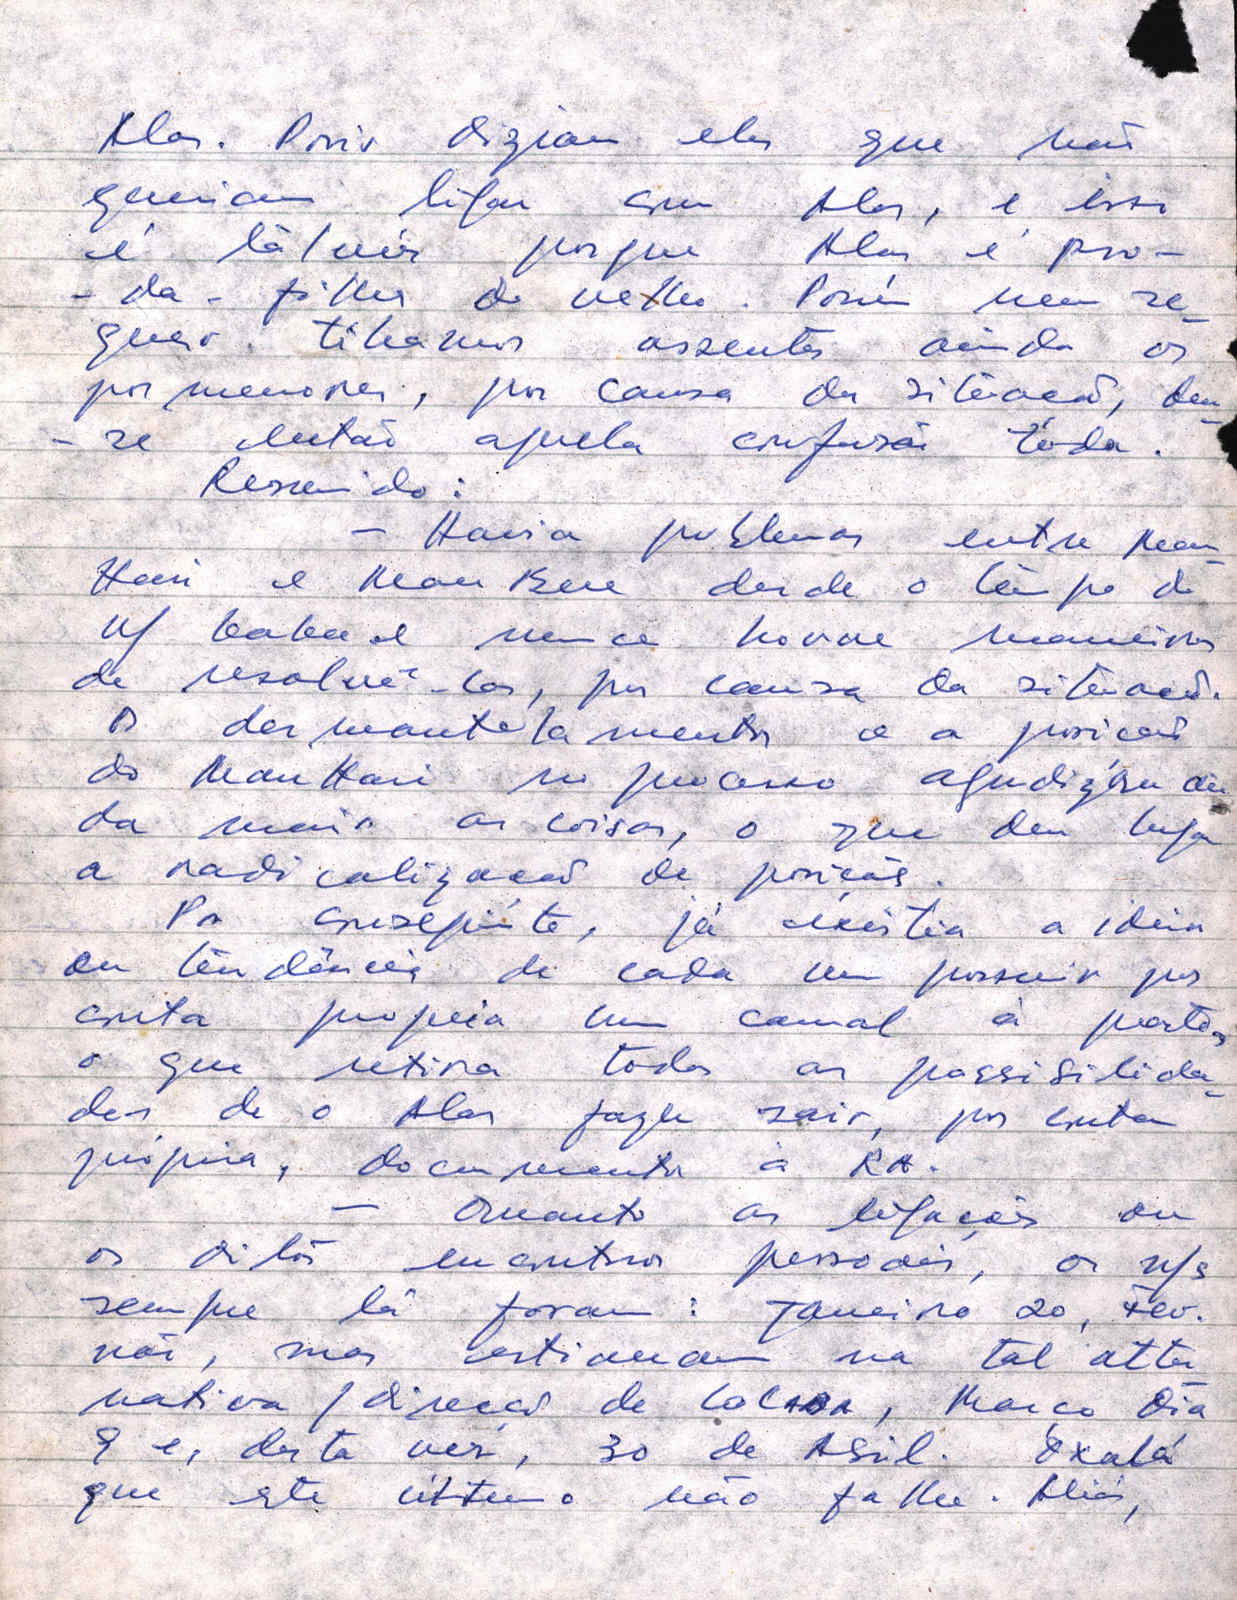 Alas. Pois diziam eles que não
queriam ligar com Alas, e isso
é talvés porque Alas é pro-
-da- filha do velho. Porém nem se-
quer tinhamos assentes ainda os
pormenores, por causa da situacão, deu-
-se então aquela confusão tôda.
Resumido:
- Havia problemas entre Mau
Hari e Mau Bere desde o têmpo do
n/ e nunca houve maneiras
de resolvê-los, por causa da situacã.
O desmantelamento e a posicão
do Mau Hari no processo agudizáram ain
da mais as coisas, o que deu lugar
a radicalizacão de posicões.
Por conseguinte, já existia a ideia
ou têndência de cada um possuir por
conta propria um canal à parte,
o que retira todas as possibilida-
des de o Alas fazer sair, por conta
própria, documentos à RA.
- Quanto as ligações ou
os ditos encontros pessoais, os n/s
sempre lá foram: Janeiro 20, Fev.
não, mas estiveram na tal alter
nativa /direcão de , Marco Dia
9 e, desta vez, 30 de Abril. Oxalá
que este último não falhe. Aliás,